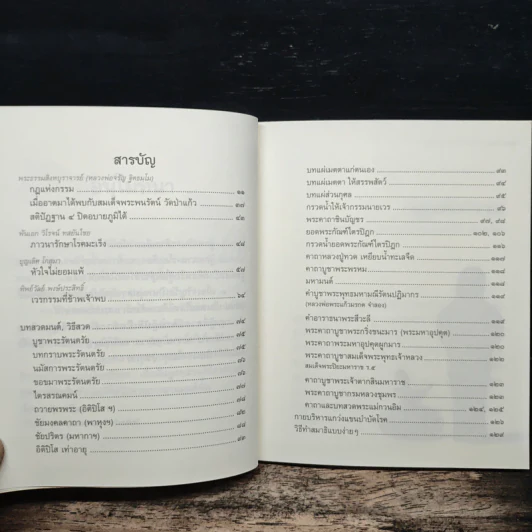 สารบัญ
พระธรรมสิงหบุราจารย์ (หลวงพ่อจรัญ ฐิตธมฺโม)
กฎแห่งกรรม ๑๑
เมื่ออาตมาได้พบกับสมเด็จพระพนรัตน์ วัดป่าแก้ว ๓๗
สติปัฏฐาน ๔ ปิดอบายภูมิได้ ๔๒
พันเอก วิโรจน์
ภาวนารักษาโรคมะเร็ง ๔๘
บุญเติศ โกสุมา
หัวใจไม่ยอมแพ้ ๕๘
เวรกรรมที่ข้าพเจ้าพบ ๖๔
บทสวดมนต์, วิธีสวด ๗๔
บูชาพระรัตนตรัย ๗๕
บทกราบพระรัตนตรัย ๗๕
นมัสการพระรัตนตรัย ๗๖
ขอขมาพระรัตนตรัย ๗๗
ไตรสรณคมน์ ๗๗
ถวายพรพระ (อิติปิโส ฯ) ๗๘
ชัยมงคลคาถา (พาหุงฯ) ๗๘
ชัยปริตร (มหากาฯ) ๘๑
อิติปิโส เท่าอายุ
บทแผ่เมตตาแก่ตนเอง ๙๓
บทแผ่เมตตา ให้สรรพสัตว์ ๙๔
บทแผ่ส่วนกุศล ๙๕
กรวดน้ำให้เจ้ากรรมนายเวร ๙๖
พระคาถาชินบัญชร ๙๗, ๙๘
ยอดพระกัณฑ์ไตรปิฎก ๑๐๒, ๑๐๖
กรวดน้ำยอดพระกัณฑ์ไตรปิฎก ๑๑๖
คาถาหลวงปู่ทวด เหยียบน้ำทะเลจืด ๑๑๗
คาถาบูชาพระพรหม ๑๑๘
มหามนต์ ๑๑๘
คำบูชาพระพุทธมหามณีรัตนปฏิมากร ๑๑๙
(หลวงพ่อพระแก้วมรกต จำลอง)
คำอาราธนาพระสีวะลี ๑๑๙
พระคาถาบูชาพระกริ่งชนะมาร (พระมหาอุปคุต) ๑๒๐
พระคาถาพระมหาอุปคุตผูกมาร ๑๒๑
พระคาถาบูชาสมเด็จพระพุทธเจ้าหลวง ๑๒๒
สมเด็จพระปิยะมหาราช ร.๕
คาถาบูชาพระเจ้าตากสินมหาราช ๑๒๓
พระคาถาบูชากรมหลวงชุมพร ๑๒๓
คาถาและบทสวดพระแม่กวนอิม ๑๒๔, ๑๒๕
กายบริหารแกว่งแขนบำบัดโรค ๑๒๖
วิธีทำสมาธิแบบง่ายๆ ๑๒๙